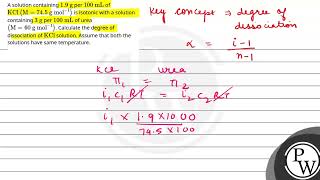 A solution containing 1.9 g per 100 mL of
KCl (M = 74.5 g mol⁻¹) is isotonic with a solution
containing 3 g per 100 mL of urea
(M = 60 g mol⁻¹). Calculate the degree of
dissociation of KCl solution. Assume that both the
solutions have same temperature.
Key concept ⇒ degree of
dissociation
α = i-1 / n-1
KCl urea
π₁ = π₂
i₁ C₁ RT = i₂ C₂ RT
i₁ × 1.9 × 1000 / 74.5 × 100
PW